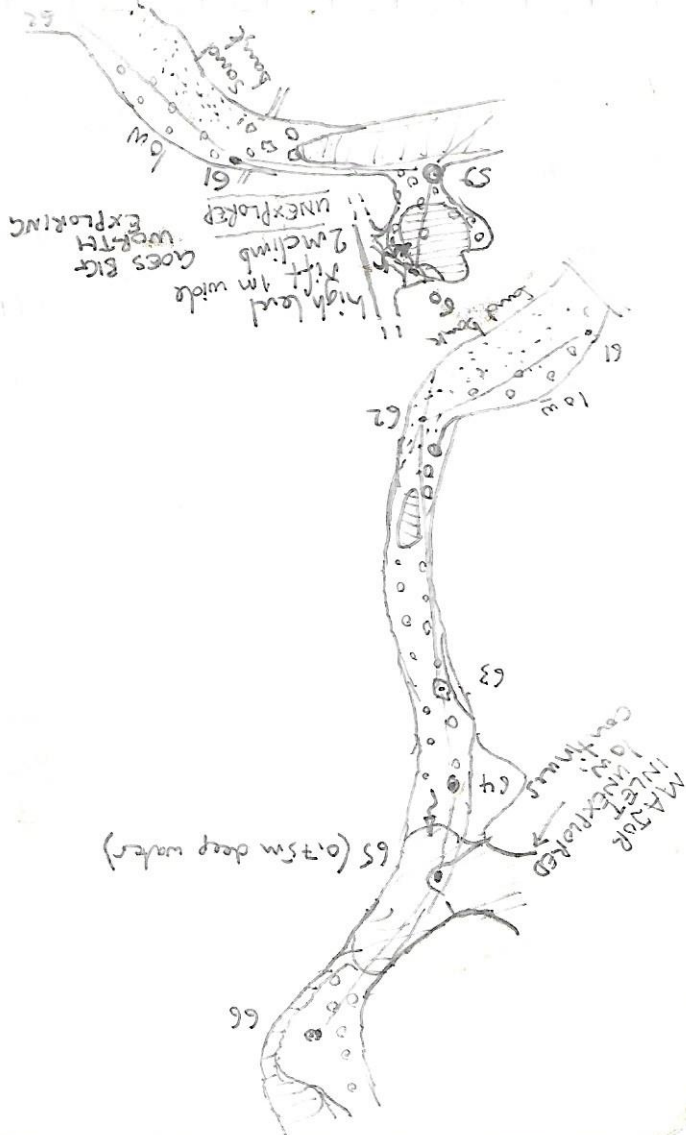 66
65 (0.75m deep water)
MAJOR
INLET
UNEXPLORED
low
continues
64
63
62
low
61
Sand bank
60
high level
rift 1m wide
2m climb
UNEXPLORED
GOES BIG
WORTH
EXPLORING
59
61
low
Sand
bank